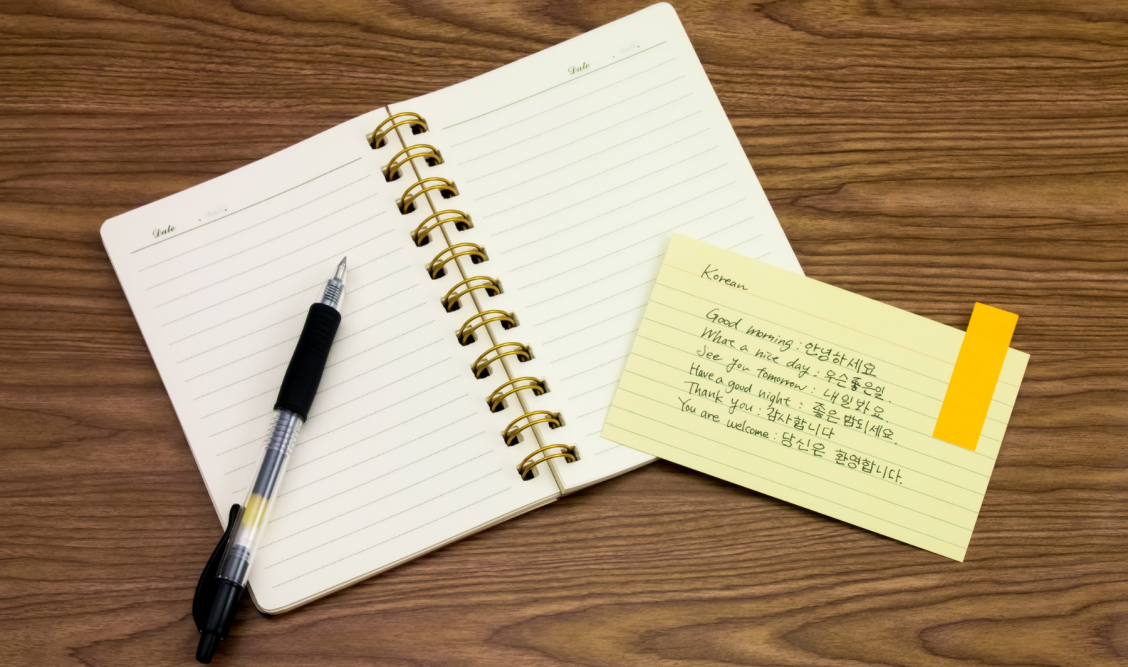 Date
Date
Korean
Good morning : 안녕하세요
What a nice day : 우슨좋은일.
See you tomorrow : 내일봐요.
Have a good night : 좋은밤되세요.
Thank you : 감사합니다
You are welcome : 당신은 환영합니다.